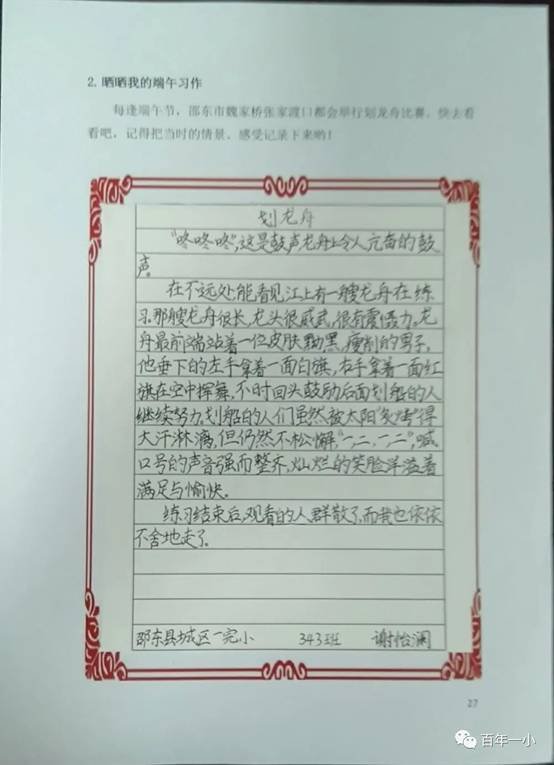 2. 晒晒我的端午习作
每逢端午节，邵东市魏家桥张家渡口都会举行划龙舟比赛。快去看
看吧，记得把当时的情景、感受记录下来哟！
划龙舟
“咚咚咚”，这是鼓声龙舟上令人亢奋的鼓
声。
在不远处，能看见江上有一艘龙舟在练
习。那艘龙舟很长，龙头很威武，很有震慑力。龙
舟最前端站着一位皮肤黝黑，瘦削的男子，
他垂下的左手拿着一面白旗，右手拿着一面红
旗在空中挥舞，不时回头鼓励后面划船的人
继续努力。划船的人们虽然被太阳“炙烤”得
大汗淋漓，但仍然不松懈“一，二，一二”，喊
口号的声音强而整齐，灿烂的笑脸洋溢着
满足与愉快。
练习结束后，观看的人群散了，而我也依依
不舍地走了。
邵东县城区一完小 343班 谢怡澜
27
百年一小